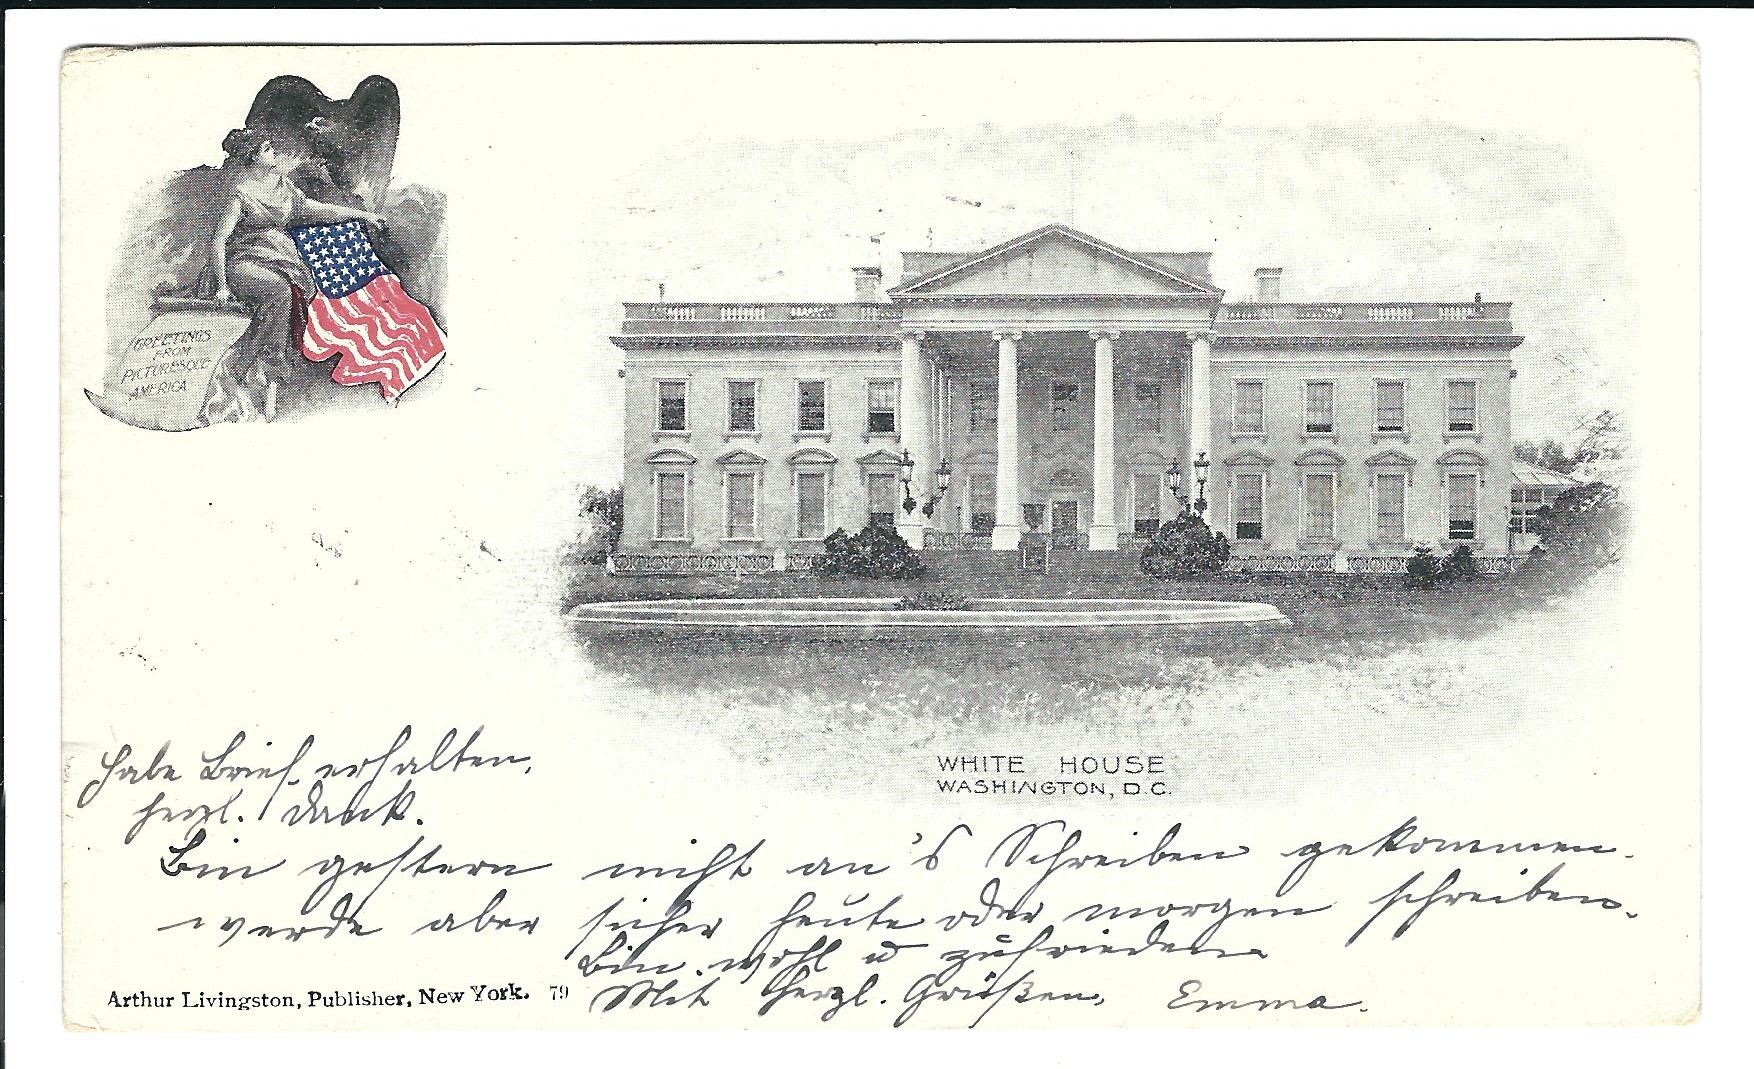 GREETINGS
FROM
PICTURESQUE
AMERICA
WHITE HOUSE
WASHINGTON, D.C.
Habe Brief erhalten,
herzl. Dank.
Bin gestern nicht an's Schreiben gekommen.
werde aber sicher heute oder morgen schreiben.
Bin wohl u zufrieden
Mit herzl. Grüßen, Emma.
Arthur Livingston, Publisher, New York. 79